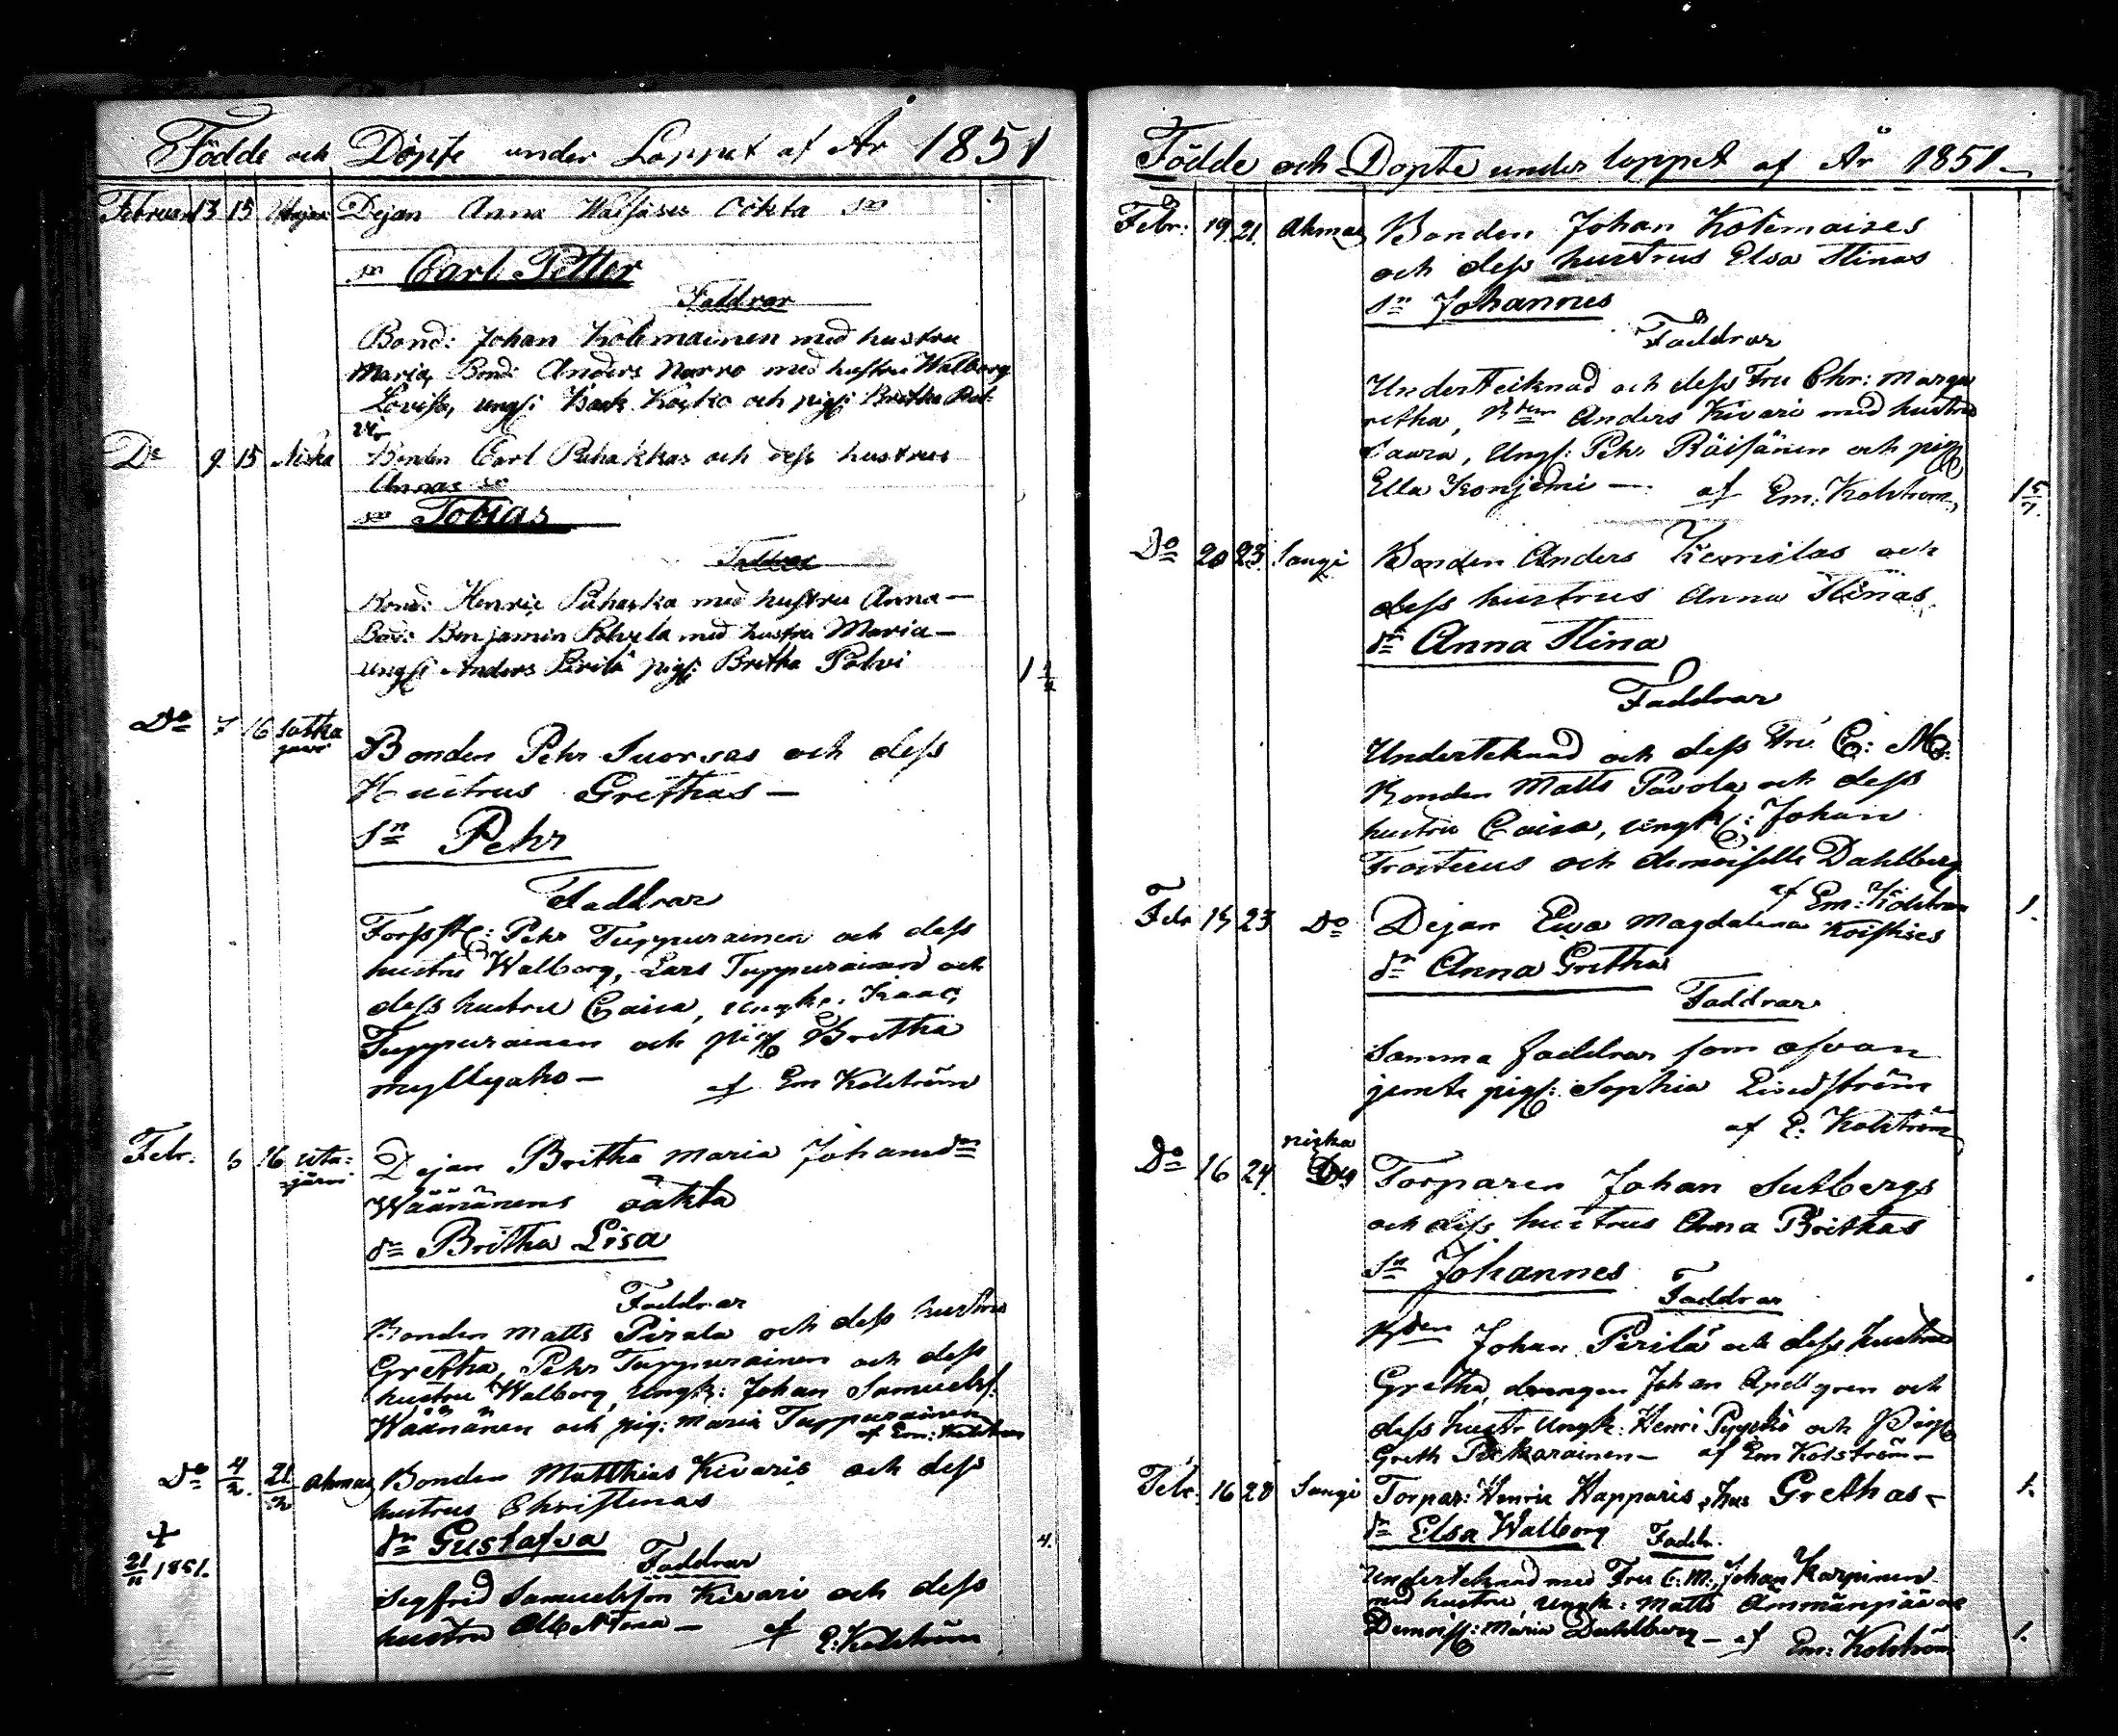 Födde och Döpte under Loppet af År 1851
Februari 13 15 Dejan Anna Oäkta Sn
Sn Carl Petter
Faddrar
Bond: Johan Kolemainen med hustru
Maria, Bond: Anders Narro med hustru Walborg
Lovisa, ungk: Isack och pig: Britha
Do 9 15 Niska Bonden Carl Pihakkas och dess hustrus
Annas Sn
Sn Tobias
Faddrar
Bond: Henric Pihakka med hustru Anna —
Bond: Benjamin med hustru Maria —
ungk: Anders Perilä pig: Britha Polvi
Do 7 16 Sotka
järvi
Bonden Pehr Suorsas och dess
Hustrus Grethas —
Sn Pehr
Faddrar
Pehr Tuppurainen och dess
hustru Walborg, Lars Tuppurainen och
dess hustru Caisa, ungk: Isaac
Tuppurainen och pig Britha
Myllyaho — af Em Kolström
Febr. 5 16 Uta=
järvi Dejan Britha Maria Johansdr
Wäänänens oäkta
dr Britha Lisa
Faddrar
Bonden Matts Pirala och dess hustru
Gretha, Pehr Tuppurainen och dess
hustru Walborg, ungk: Johan Samuelss.
Wäänänen och pig: Maria Tuppurainen
af Em: Kolström
Do 4/2. 21/2 Ahmas Bonden Matthias Kivaris och dess
hustrus Christinas
dr Gustafva
4.
Faddrar
+
21/11 1851.
Sigfrid Samuelsson Kivari och dess
hustru — af E: Kolström
Födde och Döpte under loppet af År 1851 —
Febr: 19. 21. Ahmas Bonden Johan Kolemaises
och dess hustrus Elsa Stinas
Sn Johannes
Faddrar
Underteiknad och dess Fru Chr: Marga
retha, Bden Anders Kivari med hustru
Laura, Ungk: Pehr Räisänen och pig
Ella — af Em: Kolström
Do 20 23. Sangi Bonden Anders och
dess hustrus Anna Stinas
dr Anna Stina
Faddrar
Underteknad och dess Fru C: M:
Bonden Matts Pavola och dess
hustru Caisa, ungk: Johan
Frosterus och demoiselle Dahlberg
af Em: Kolström
Febr 15 23 Do Dejan Ewa Magdalena Koistises
1.
dr Anna Gretha
Faddrar
Samma faddrar som ofvan
jemte pig: Sophia Lindström
af E: Kolström
Do 16 24. Niska Torparen Johan Sutbergs
och dess hustrus Anna Brithas
Sn Johannes
Faddrar
Bden Johan Perilä och dess hustru
Gretha, drengen Johan och
dess hustr Ungk: Henri och Pig
Greth Pukarainen — af Em Kolström —
Febr: 16 28 Sangi Torpar: Henric Happaris, hus Grethas —
1.
dr Elsa Walborg Faddr.
Underteknad med Fru C: M:, Johan Karpinen
med hustru, ungk: Matts Ämmänpää och
Demoiss: Maria Dahlberg — af Em: Kolström
1.